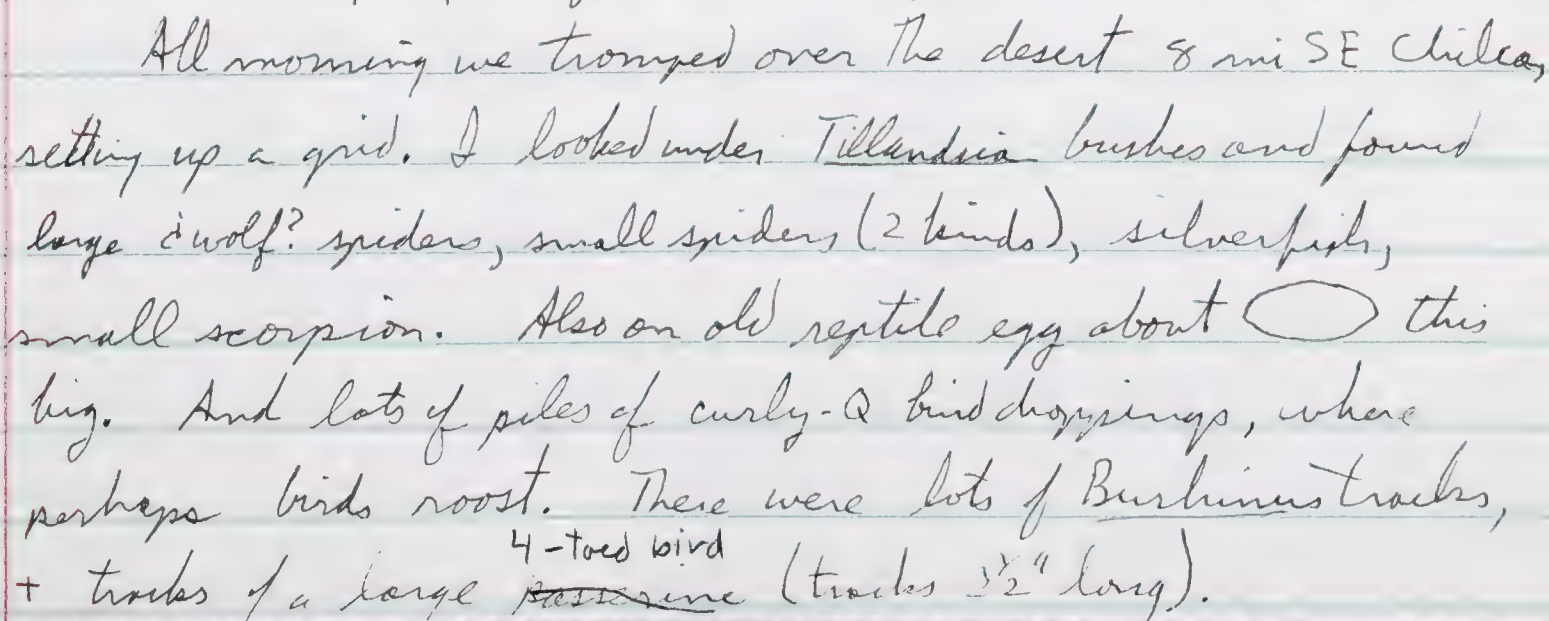 All morning we tromped over the desert 8 mi SE Chilca,
setting up a grid. I looked under Tillandsia bushes and found
large ¿wolf? spiders, small spiders (2 kinds), silverfish,
small scorpion. Also an old reptile egg about this
big. And lots of piles of curly-Q bird droppings, where
perhaps birds roost. There were lots of Burhinus tracks,
4-toed bird
+ tracks of a large passerine (tracks long).